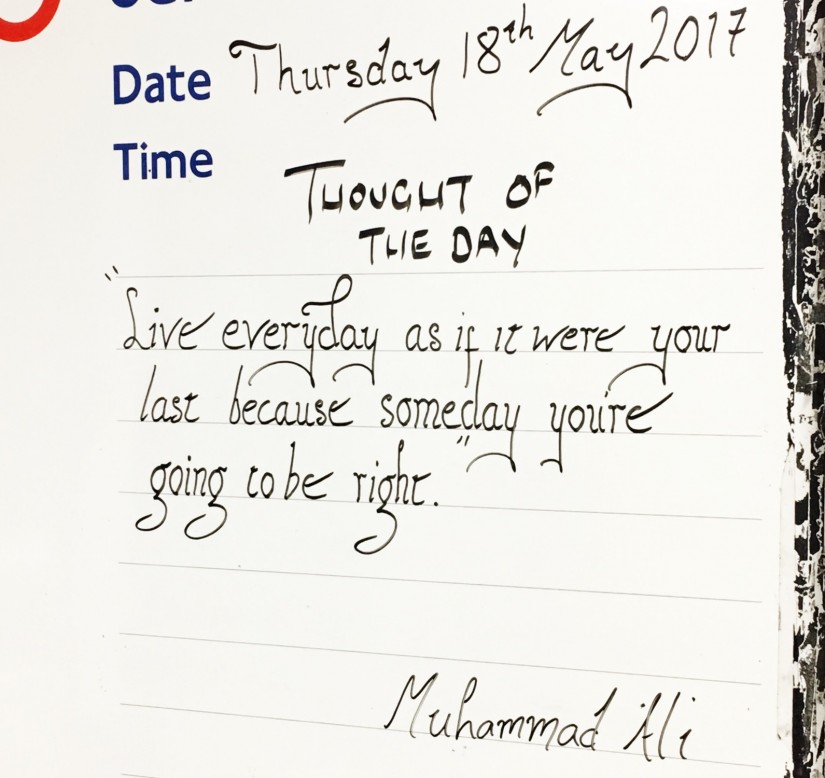 Date Thursday 18th May 2017
Time
THOUGHT OF
THE DAY
"Live everyday as if it were your
last because someday you're
going to be right."
Muhammad Ali